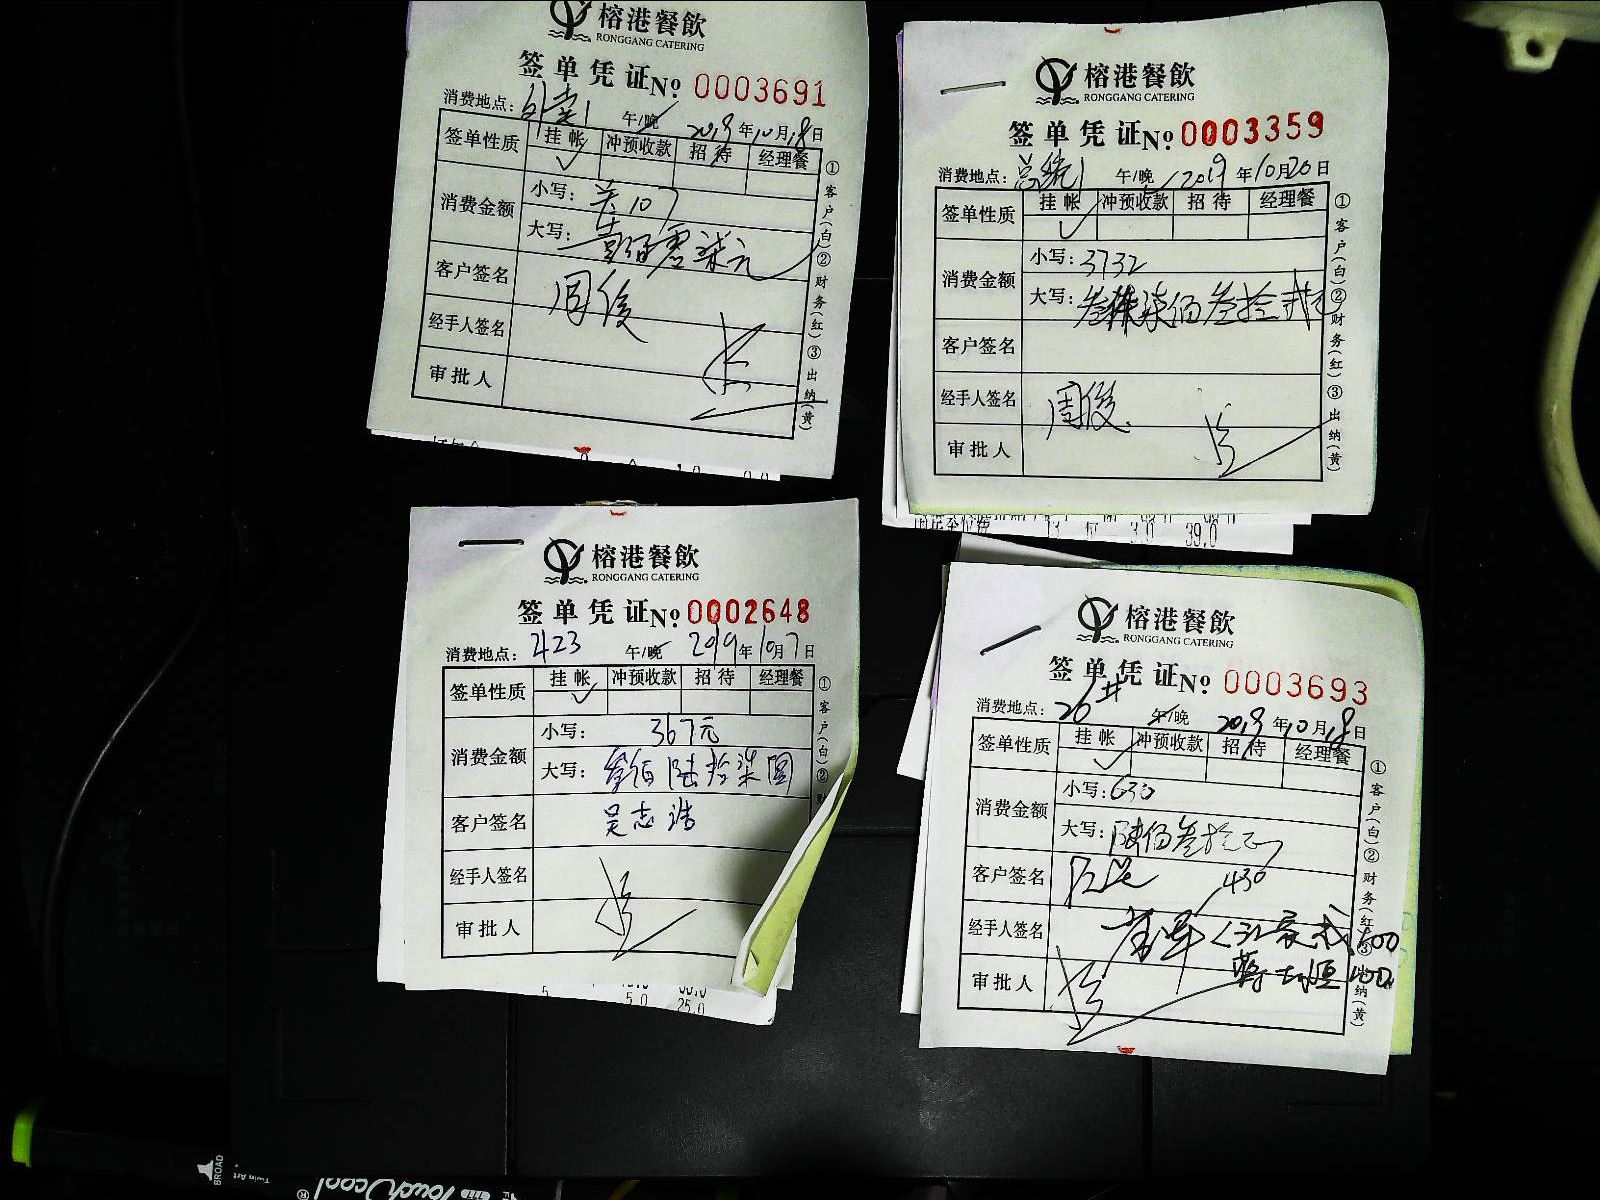 榕港餐飲
RONGGANG CATERING
签单凭证 No 0003691
消费地点：外卖1 午/晚 2019年10月18日
签单性质 挂帐 冲预收款 招待 经理餐
消费金额 小写：
大写：壹佰零柒元
客户签名 周俊
经手人签名
审批人
①客户(白)②财务(红)③出纳(黄)
榕港餐飲
RONGGANG CATERING
签单凭证 No 0003359
消费地点：总统1 午/晚 2019年10月20日
签单性质 挂帐 冲预收款 招待 经理餐
消费金额 小写：3732
大写：叁仟柒佰叁拾贰元
客户签名
经手人签名 周俊
审批人
①客户(白)②财务(红)③出纳(黄)
13 位 3.0 39.0
榕港餐飲
RONGGANG CATERING
签单凭证 No 0002648
消费地点：423 午/晚 2019年10月7日
签单性质 挂帐 冲预收款 招待 经理餐
消费金额 小写：367元
大写：叁佰陆拾柒圆
客户签名 吴志浩
经手人签名
审批人
①客户(白)②财
5 5.0 25.0
榕港餐飲
RONGGANG CATERING
签单凭证 No 0003693
消费地点：26# 午/晚 2019年10月18日
签单性质 挂帐 冲预收款 招待 经理餐
消费金额 小写：630
大写：陆佰叁拾正
客户签名 430
经手人签名 100
审批人 100
①客户(白)②财务(红)③出纳(黄)
BROAD
Twin Art
Touch cool ®